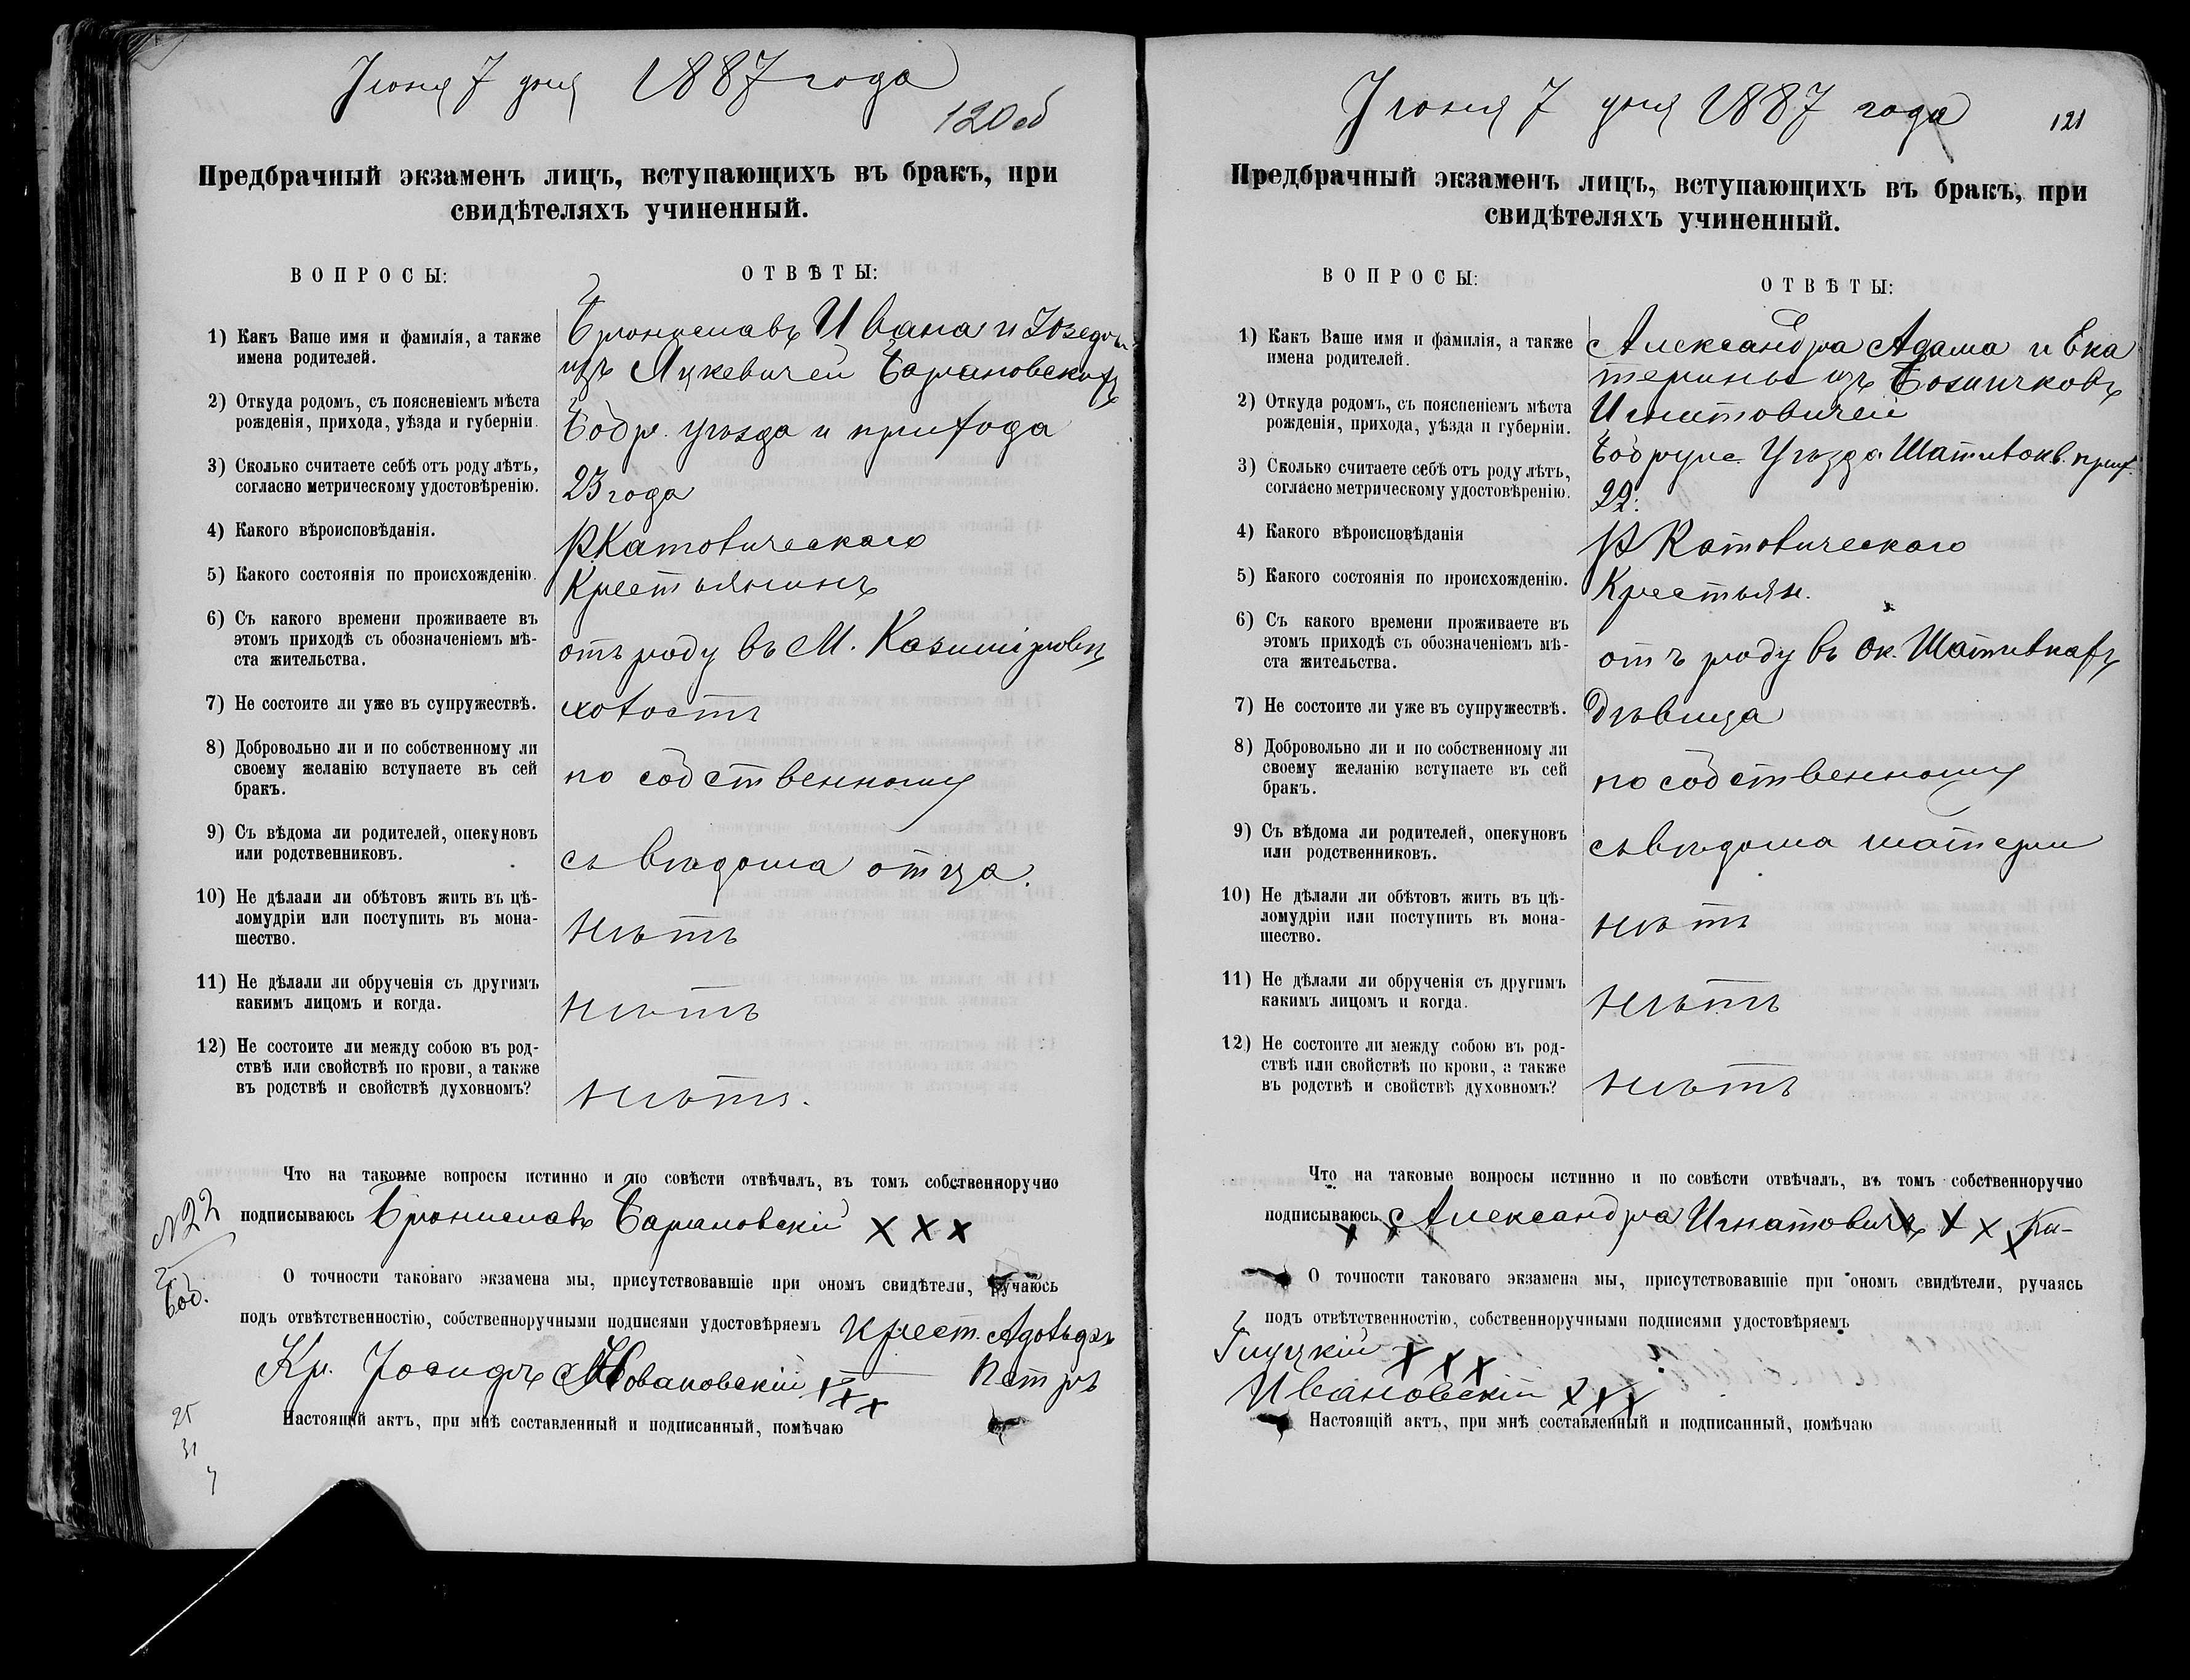 Іюня 7 дня 1887 года
120об
Предбрачный экзаменъ лицъ, вступающихъ въ бракъ, при
свидѣтеляхъ учиненный.
ВОПРОСЫ:
ОТВѢТЫ:
1) Какъ Ваше имя и фамилія, а также
имена родителей.
Брониславъ Ивана и Юзефы
изъ Лукевичей Барановскихъ
2) Откуда родомъ, съ поясненіемъ мѣста
рожденія, прихода, уѣзда и губерніи.
Бобр. уѣзда и прихода
3) Сколько считаете себѣ отъ роду лѣтъ,
согласно метрическому удостовѣренію.
23 года
4) Какого вѣроисповѣданія.
Р Католическаго
5) Какого состоянія по происхожденію.
Крестьянинъ
6) Съ какого времени проживаете въ
этомъ приходѣ съ обозначеніемъ мѣ-
ста жительства.
отъ роду въ М. Казиміровѣ
7) Не состоите ли уже въ супружествѣ.
холостъ
8) Добровольно ли и по собственному ли
своему желанію вступаете въ сей
бракъ.
по собственному
9) Съ вѣдома ли родителей, опекуновъ
или родственниковъ.
съ вѣдома отца.
10) Не дѣлали ли обѣтовъ жить въ цѣ-
ломудріи или поступить въ мона-
шество.
нѣтъ
11) Не дѣлали ли обрученія съ другимъ
какимъ лицомъ и когда.
нѣтъ
12) Не состоите ли между собою въ род-
ствѣ или свойствѣ по крови, а также
въ родствѣ и свойствѣ духовномъ?
нѣтъ.
Что на таковые вопросы истинно и по совѣсти отвѣчалъ, въ томъ собственноручно
подписываюсь Брониславъ Барановскій х х х
№ 22
Боб.
О точности таковаго экзамена мы, присутствовавшіе при ономъ свидѣтели, ручаюсь
подъ отвѣтственностію, собственноручными подписями удостовѣряемъ Крест. Адольфъ
Кр. Іосифъ Новаковскій ххх Петръ
Настоящій актъ, при мнѣ составленный и подписанный, помѣчаю
25
31
Іюня 7 дня 1887 года
121
Предбрачный экзаменъ лицъ, вступающихъ въ бракъ, при
свидѣтеляхъ учиненный.
ВОПРОСЫ:
ОТВѢТЫ:
1) Какъ Ваше имя и фамилія, а также
имена родителей.
Александра Адама и Ека
терины изъ Божичковъ
Игнатовичей
2) Откуда родомъ, съ поясненіемъ мѣста
рожденія, прихода, уѣзда и губерніи.
Бобруйс. Уѣзда Шатилков. прих.
3) Сколько считаете себѣ отъ роду лѣтъ,
согласно метрическому удостовѣренію.
22.
4) Какого вѣроисповѣданія
Р Католическаго
5) Какого состоянія по происхожденію.
Крестьян.
6) Съ какого времени проживаете въ
этомъ приходѣ съ обозначеніемъ мѣ-
ста жительства.
отъ роду въ Ок. Шатилкахъ
7) Не состоите ли уже въ супружествѣ.
дѣвица
8) Добровольно ли и по собственному ли
своему желанію вступаете въ сей
бракъ.
по собственному
9) Съ вѣдома ли родителей, опекуновъ
или родственниковъ.
съ вѣдома матери
10) Не дѣлали ли обѣтовъ жить въ цѣ-
ломудріи или поступить въ мона-
шество.
нѣтъ
11) Не дѣлали ли обрученія съ другимъ
какимъ лицомъ и когда.
нѣтъ
12) Не состоите ли между собою въ род-
ствѣ или свойствѣ по крови, а также
въ родствѣ и свойствѣ духовномъ?
нѣтъ
Что на таковые вопросы истинно и по совѣсти отвѣчалъ, въ томъ собственноручно
подписываюсь Александра Игнатовичъ х х х
О точности таковаго экзамена мы, присутствовавшіе при ономъ свидѣтели, ручаясь
подъ отвѣтственностію, собственноручными подписями удостовѣряемъ
Глуцкій х х х
Ивановскій ххх
Настоящій актъ, при мнѣ составленный и подписанный, помѣчаю